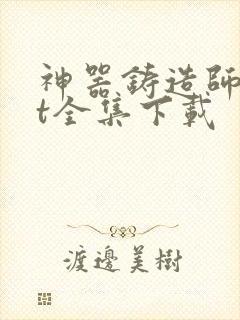 神器鑄造師
t全集下載
渡邊美樹